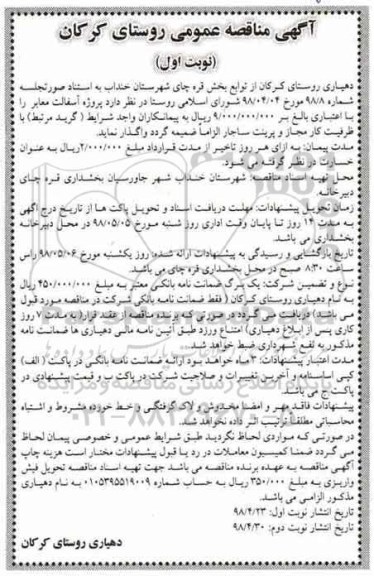 آگهی مناقصه عمومی روستای کرکان
(نوبت اول)
دهیاری روستای کرکان از توابع بخش قره چای شهرستان خنداب به استناد صورتجلسه
شماره ۹۸/۸ مورخ ۹۸/۰۴/۰۴ شورای اسلامی روستا در نظر دارد پروژه آسفالت معابر را
با اعتباری بالغ بر ۹/۰۰۰/۰۰۰/۰۰۰ ریال به پیمانکاران واجد شرایط ( گرید مرتبط) با
ظرفیت کار مجاز و پرینت ساجار الزاما ضمیمه گردد واگذار نماید.
مدت پیمان: به ازای هر روز تاخیر از مدت قرارداد مبلغ ۲/۰۰۰/۰۰۰ریال به عنوان
خسارت در نظر گرفته می شود.
محل تهیه اسناد مناقصه: شهرستان خنداب شهر جاورسیان بخشداری قره چای
دبیرخانه
زمان تحویل پیشنهادات: مهلت دریافت اسناد و تحویل پاکت ها از تاریخ درج آگهی
به مدت ۱۴ روز تا پایان وقت اداری روز شنبه مورخ ۹۸/۰۵/۰۵ در محل دبیرخانه
بخشداری می باشد.
تاریخ بازگشایی و رسیدگی به پیشنهادات ارائه شده: روز یکشنبه مورخ ۹۸/۰۵/۰۶ راس
ساعت ۸:۳۰ صبح در محل بخشداری قره چای می باشد.
نوع و تضمین شرکت: یک برگ ضمانت نامه بانکی معتبر به مبلغ ۴۵۰/۰۰۰/۰۰۰ ریال
به نام دهیاری روستای کرکان ( فقط ضمانت نامه بانکی شرکت در مناقصه مورد قبول
می باشد) دریافت می گردد در صورتی که برنده مناقصه از عقد قرارداد به مدت ۷ روز
کاری پس از ابلاغ دهیاری) امتناع ورزد طبق آئین نامه مالی دهیاری ها ضمانت نامه
مذکور به نفع شهرداری ضبط خواهد شد.
مدت اعتبار پیشنهادات: ۳ ماه خواهد بود ارائه ضمانت نامه بانکی در پاکت (الف)
کپی اساسنامه و آخرین تغییرات و صلاحیت شرکت در پاکت ب و قیمت پیشنهادی در
پاکت ج می باشد.
پیشنهادات فاقد مهر و امضا مخدوش و لاک گرفتگی و خط خورده مشروط و اشتباه
محاسباتی مطلقا ترتیب اثر داده نخواهد شد.
در صورتی که مواردی لحاظ نگردید طبق شرایط عمومی و خصوصی پیمان لحاظ
می گردد ضمنا کمیسیون معاملات در رد یا قبول پیشنهادات مختار است هزینه چاپ
آگهی مناقصه به عهده برنده مناقصه می باشد جهت تهیه اسناد مناقصه تحویل فیش
واریزی به مبلغ ۳۵۰/۰۰۰ ریال به حساب شماره ۰۱۰۵۳۹۵۵۱۹۰۰۹ به نام دهیاری
مذکور الزامی می باشد.
تاریخ انتشار نوبت اول: ۹۸/۴/۲۳
تاریخ انتشار نوبت دوم: ۹۸/۴/۳۰
دهیاری روستای کرکان